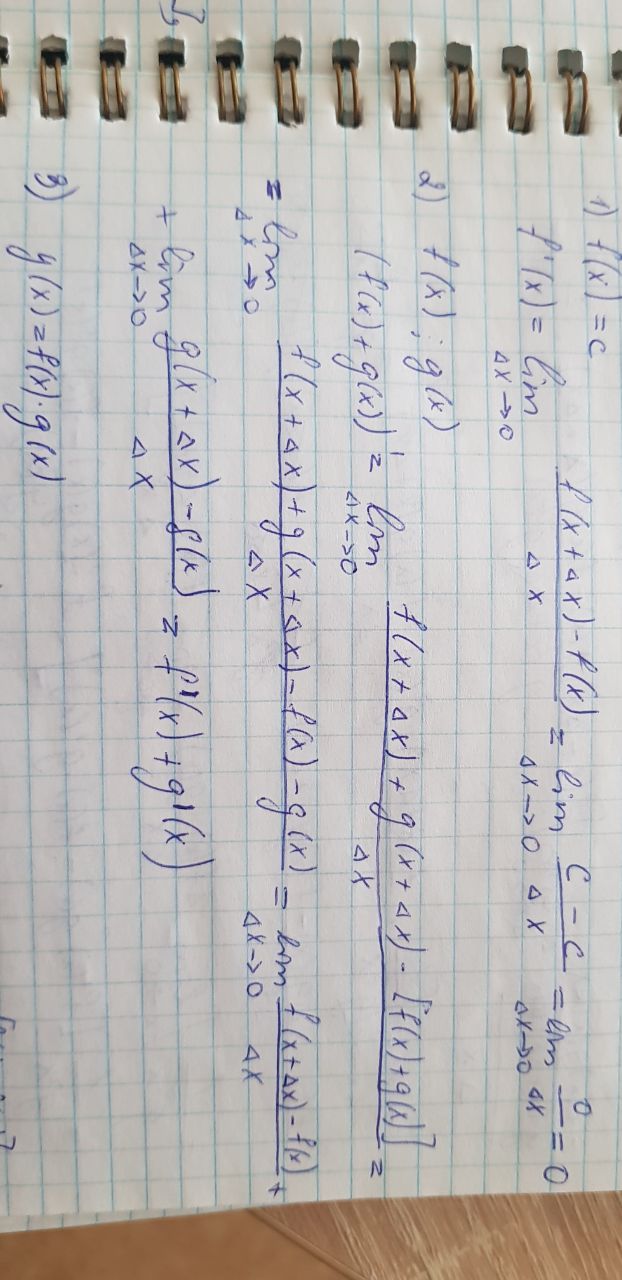 1) f(x) = c
f'(x) = lim Δx→0 (f(x+Δx) - f(x))/Δx = lim Δx→0 (c - c)/Δx = lim Δx→0 0/Δx = 0
2) f(x); g(x)
(f(x) + g(x))' = lim Δx→0 (f(x+Δx) + g(x+Δx) - [f(x)+g(x)])/Δx =
= lim Δx→0 (f(x+Δx) + g(x+Δx) - f(x) - g(x))/Δx = lim Δx→0 (f(x+Δx) - f(x))/Δx +
+ lim Δx→0 (g(x+Δx) - g(x))/Δx = f'(x) + g'(x)
3) y(x) = f(x)·g(x)